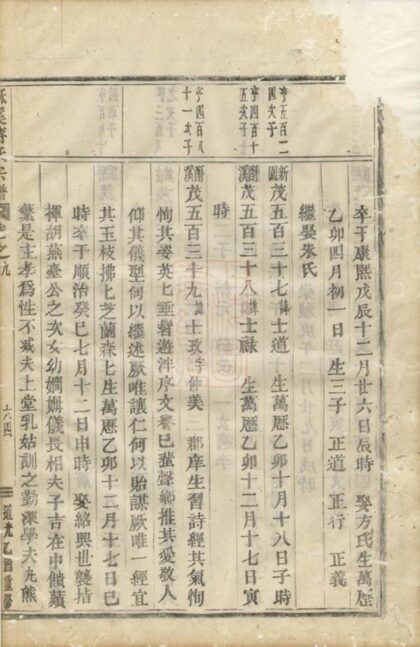 卒于康熙戊辰十二月廿六日辰時 娶方氏生萬歷
乙卯四月初一日 生三子 正道 正行 正義
繼娶朱氏
亨五百二
四次子
新園茂五百三十七諱士道 生萬歷乙卯十月十八日子時
亨四百十
五次子
酥溪茂五百三十八諱士祿 生萬歷乙卯十二月十七日寅
時
亨四百八
十一次子
酥溪茂五百三十九諱士玫字仲美 郡庠生習詩經其氣恂
恂其姿英七垂髫遊泮序文譽已蜚聲鄉推其愛敬人
仰其儀型何以繼述厥唯讓仁何以貽謀厥唯一經宜
其玉枝拂七芝蘭森七生萬歷乙卯十二月十七日巳
時卒于順治癸巳七月十二日申時 娶紹興世襲指
揮胡燕臺公之次女幼嫻姆儀長相夫子吉在中饋蘋
蘩是主孝爲性不減夫上堂乳姑訓之勤深學夫九熊
宗譜
卷之九
六四
道光乙酉重修